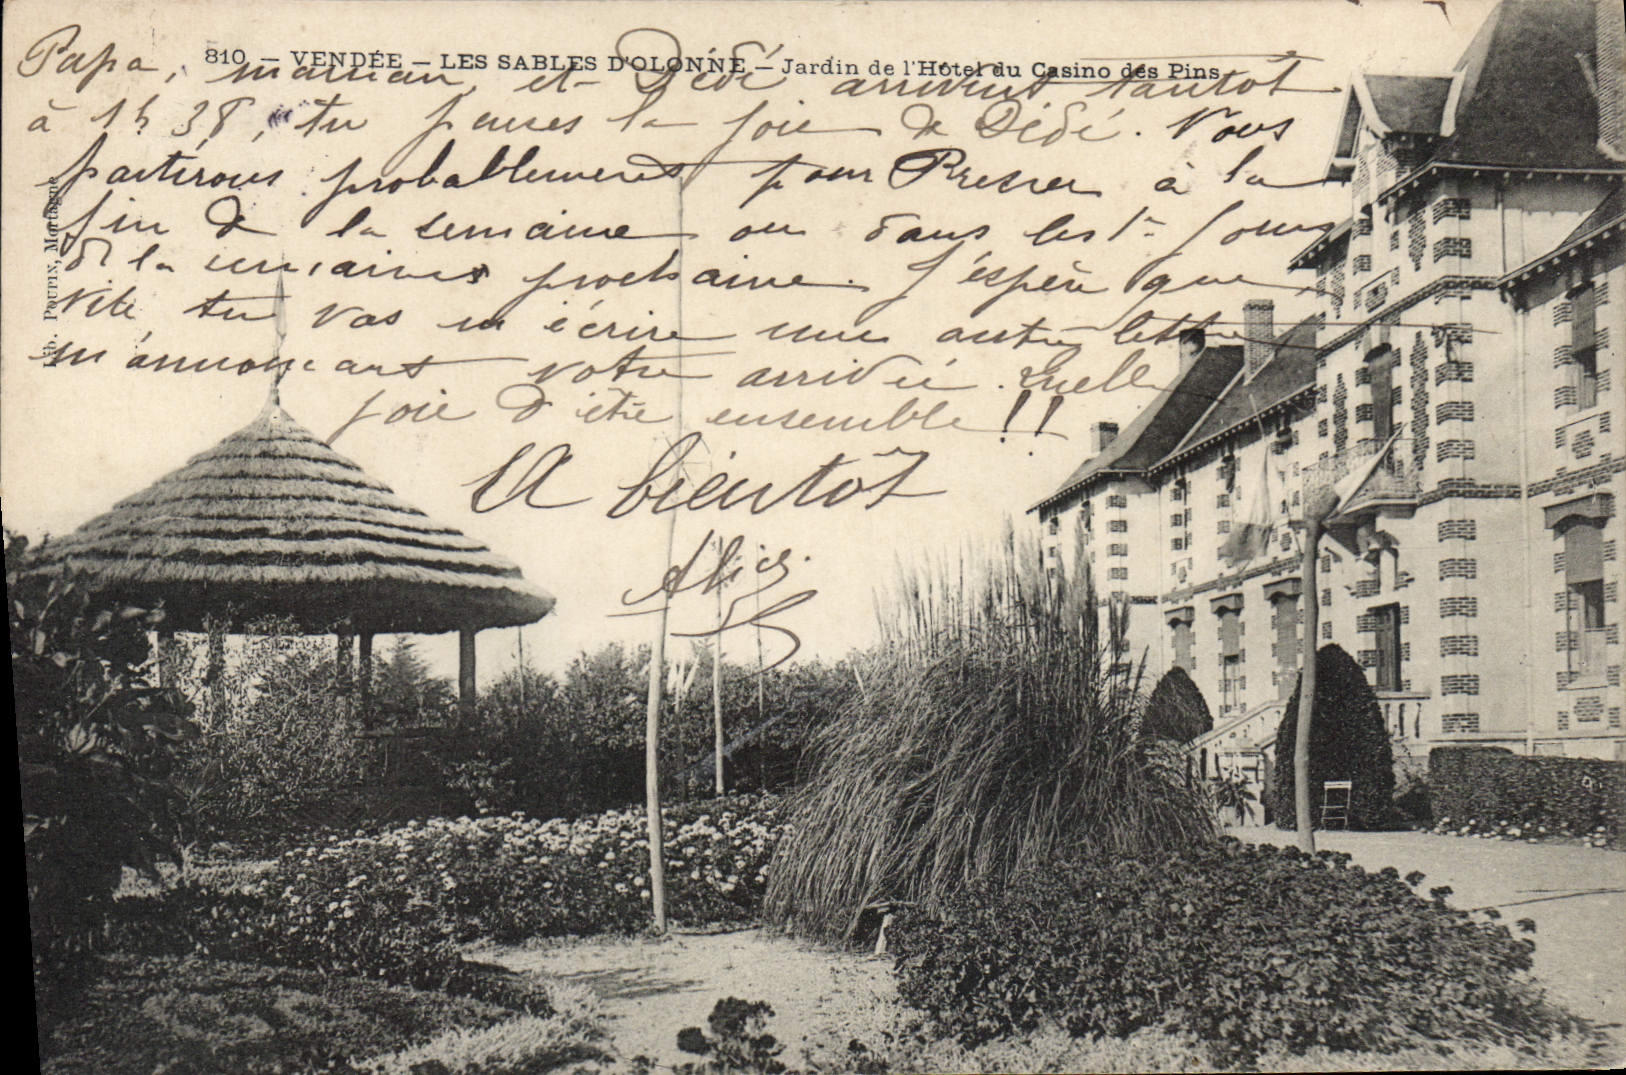 810 — VENDÉE — LES SABLES D'OLONNE — Jardin de l'Hôtel du Casino des Pins
Papa, maman, et Dédé arrivent tantôt
à 1h 38, tu penses la joie de Dédé. Nous
partirons probablement pour à la
fin de la semaine ou dans les 1er jours
de la semaine prochaine. J'espère que
vite tu vas m'écrire une autre lettre
m'annonçant votre arrivée. Quelle
joie d'être ensemble !!
A bientôt
Alice
Lib. POUPIN, Mortagne